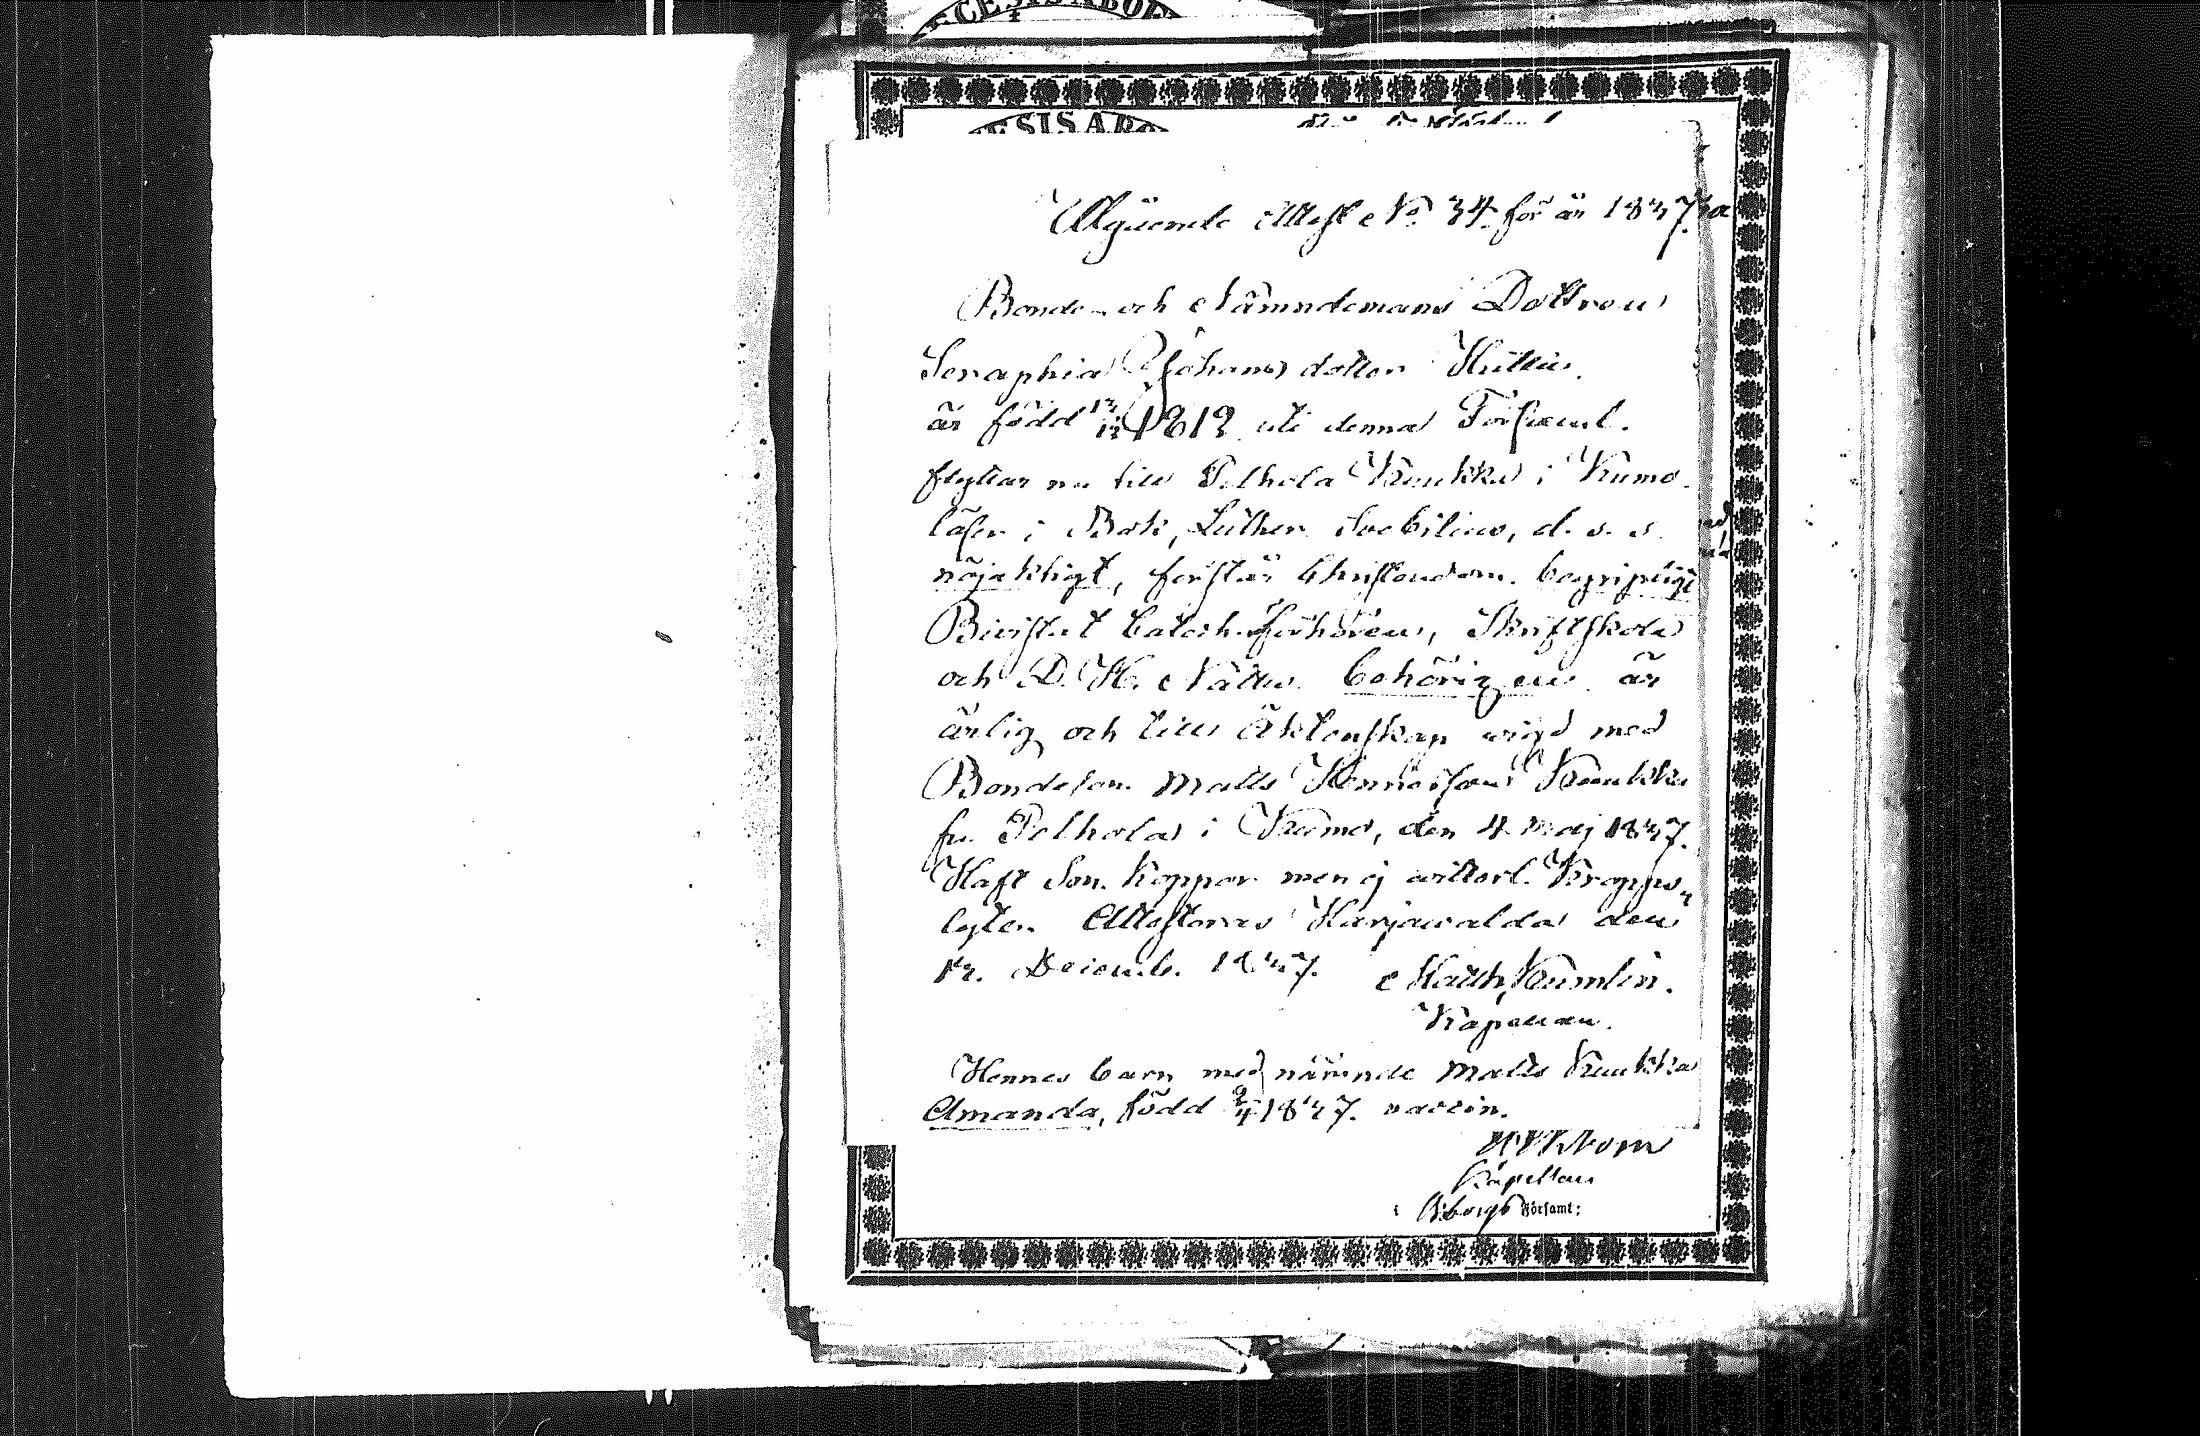 Utgående Attest No 34 för år 1847.
Bonde- och Nämndemans Dottren
Seraphia Johansdotter Huttu.
är född 12/12 1819 uti denna Församl.
flyttar nu till Pelhola Kuukka i Kumo.
läser i Bok, Luther Svebilius, d. s. s.
nöjaktigt, förstår Christendom. begripligt
Bivistat Catech.förhören, Skriftskola
och D. H. Nattv. behörigen. är
ärlig och till Äktenskap wigd med
Bondeson. Matts Henricsson Kuukka
fr. Pelhola i Kumo, den 4 Maj 1847.
Haft Son. koppor men ej witterl. Kropps-
lyten. Attesteras Harjawalda den
12. Decemb. 1847. Matth. Kumlin.
Kapellan.
Hennes barn med nämnde Matts Kuukka
Amanda, född 2/4 1847. vaccin.
Kapellan
Församl: